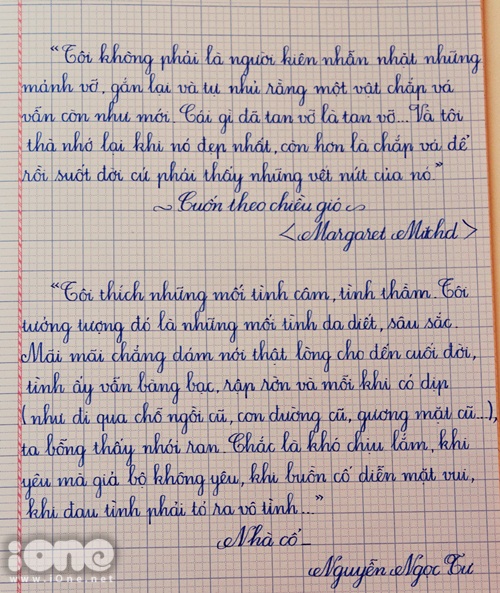 “Tôi không phải là người kiên nhẫn nhặt những
mảnh vỡ, gắn lại và tự nhủ rằng một vật chắp vá
vẫn còn như mới. Cái gì đã tan vỡ là tan vỡ... Và tôi
thà nhớ lại khi nó đẹp nhất, còn hơn là chắp vá để
rồi suốt đời cứ phải thấy những vết nứt của nó.”
~ Cuốn theo chiều gió ~
<Margaret Mitchd>
“Tôi thích những mối tình câm, tình thầm. Tôi
tưởng tượng đó là những mối tình da diết, sâu sắc.
Mãi mãi chẳng dám nói thật lòng cho đến cuối đời,
tình ấy vẫn bàng bạc, rập rờn và mỗi khi có dịp
(như đi qua chỗ ngồi cũ, con đường cũ, gương mặt cũ...),
ta bỗng thấy nhói ran. Chắc là khó chịu lắm, khi
yêu mà giả bộ không yêu, khi buồn cố diễn mặt vui,
khi đau tình phải tỏ ra vô tình...”
Nhà cổ _
Nguyễn Ngọc Tư
iOne
www.iOne.net